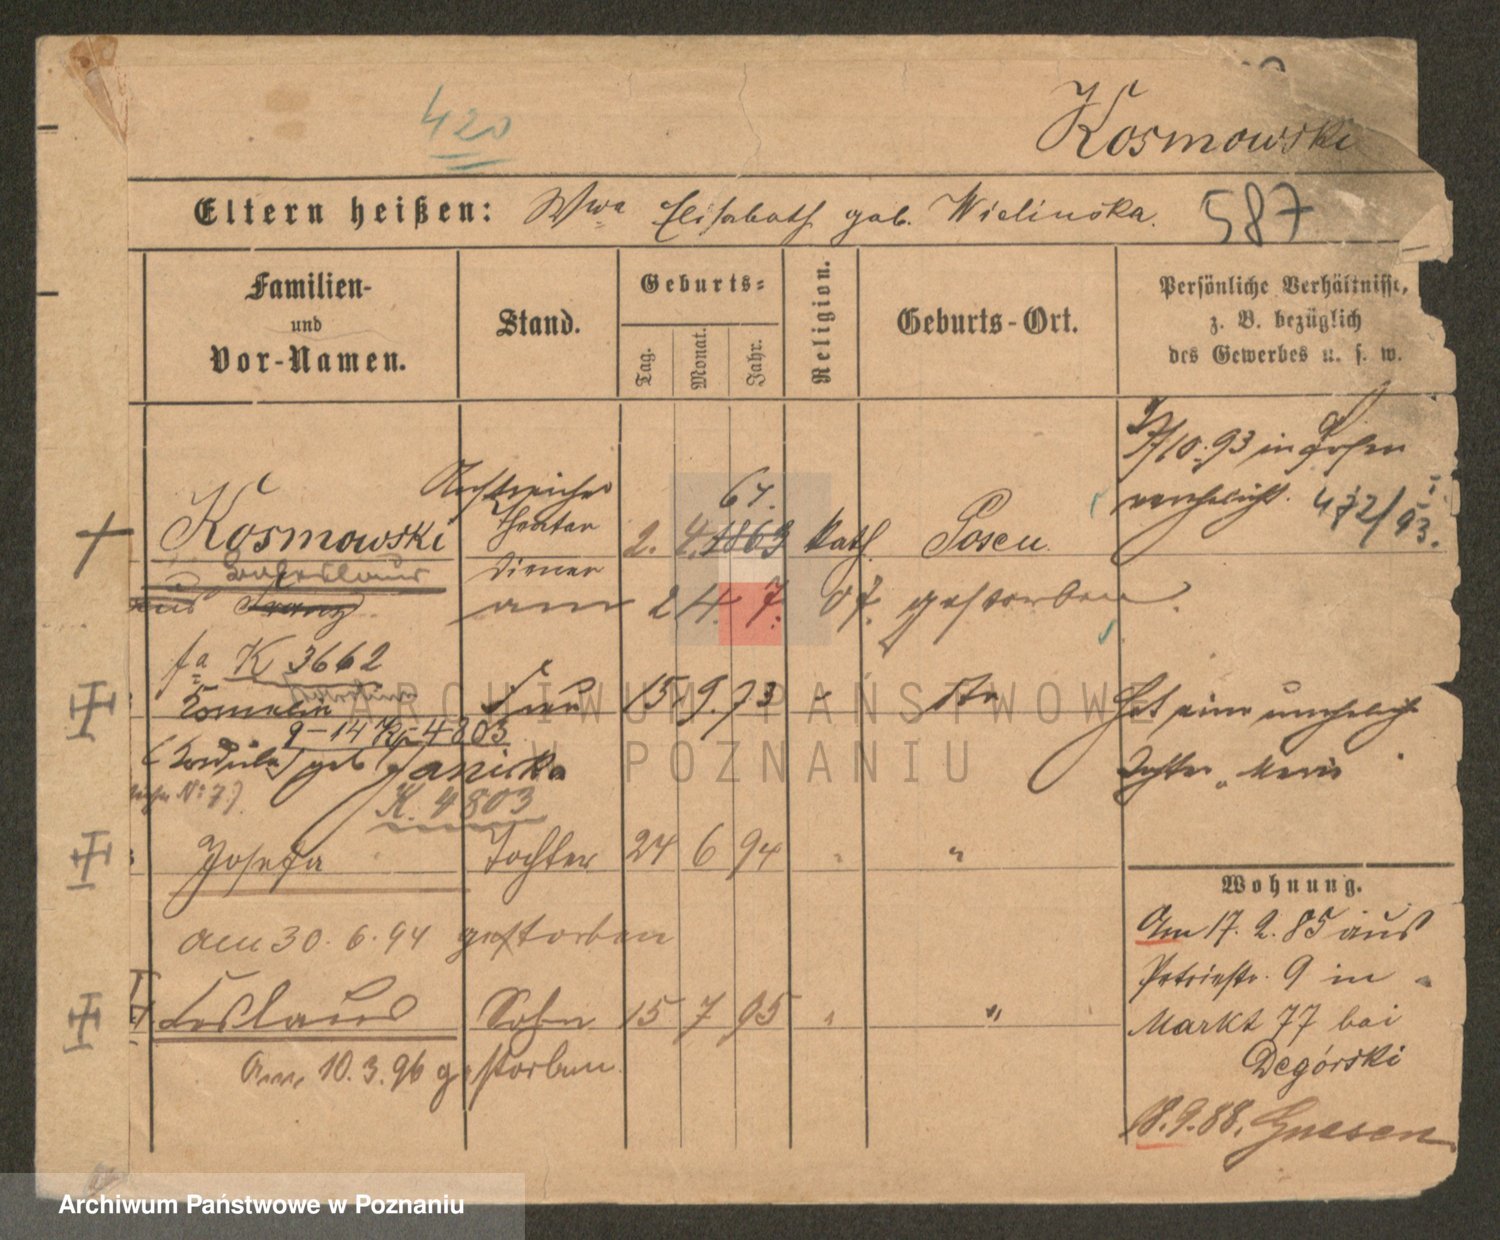 Kosmowski
420
Eltern heißen: Wwe Elisabeth geb. Wielinska.
587
Familien- und Vor-Namen.
Stand.
Geburts-
Tag.
Monat.
Jahr.
Religion.
Geburts-Ort.
Persönliche Verhältnisse,
z. B. bezüglich
des Gewerbes u. s. w.
7/10.93 in Posen
verehelicht. 472/93.
67.
Kosmowski Theater diener 2. 4. 1863 kath. Posen
aus Franz
am 24. 7. 07. gestorben.
fa K 3662
Frau 15 9. 73 " Hat eine unehelich
9-14 K 4803
(Kordula) geb Janicka Tochter "Marie
No 7)
K. 4803
Josefa Tochter 24 6 94 " "
am 30. 6. 94 gestorben
Ceslaus Sohn 15 7 95 " "
Am 10. 3. 96 gestorben.
Wohnung.
Am 17. 2. 85 aus
Petristr. 9 in
Markt 77 bei
Degórski
18. 9. 88. Gnesen
ARCHIWUM PAŃSTWOWE
W POZNANIU
Archiwum Państwowe w Poznaniu